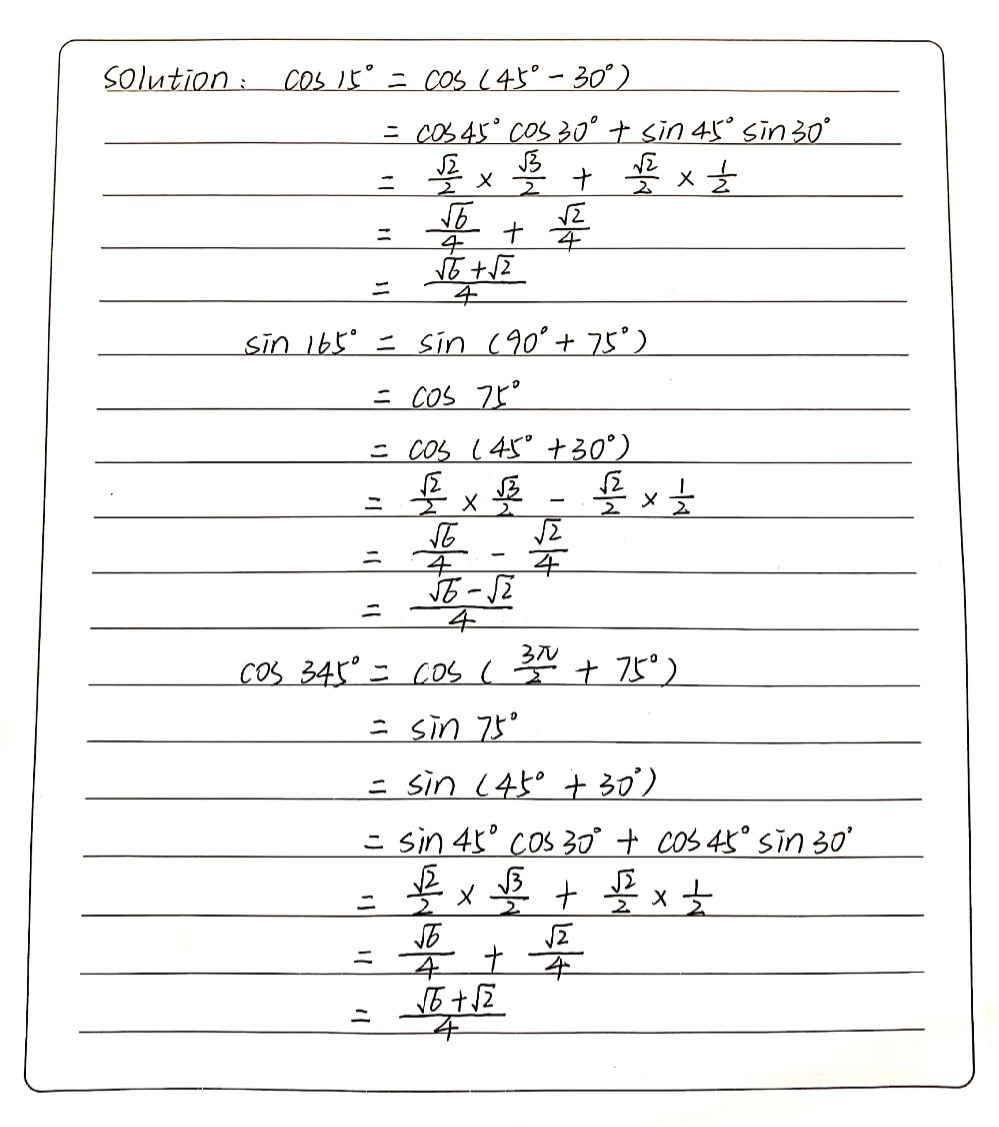 Solution: cos 15° = cos (45° - 30°)
= cos 45° cos 30° + sin 45° sin 30°
= √2/2 × √3/2 + √2/2 × 1/2
= √6/4 + √2/4
= (√6 + √2)/4
sin 165° = sin (90° + 75°)
= cos 75°
= cos (45° + 30°)
= √2/2 × √3/2 - √2/2 × 1/2
= √6/4 - √2/4
= (√6 - √2)/4
cos 345° = cos (3π/2 + 75°)
= sin 75°
= sin (45° + 30°)
= sin 45° cos 30° + cos 45° sin 30°
= √2/2 × √3/2 + √2/2 × 1/2
= √6/4 + √2/4
= (√6 + √2)/4